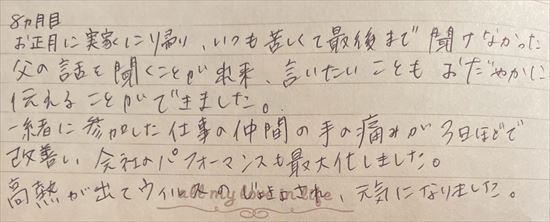 8ヵ月目
お正月に実家に帰り、いつも苦しくて最後まで聞けなかった
父の話を聞くことが出来、言いたいことも おだやかに
伝えることができました。
一緒に参加した仕事の仲間の手の痛みが3日ほどで
改善し、会社のパフォーマンスも最大化しました。
高熱が出てウィルスの され、元気になりました。